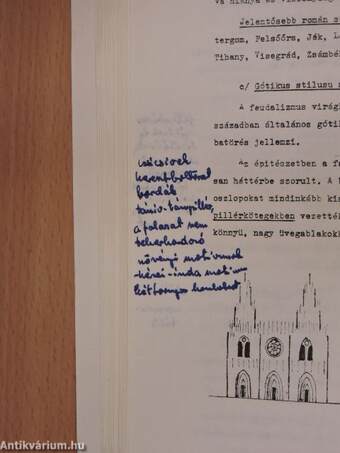 Jelentősebb román s
tergom, Felsőörs, Ják, L
Tihany, Visegrád, Zsámbé
c/ Gótikus stilusu
A feudalizmus virág
században általános góti
batörés jellemzi.
Az épitészetben a f
san háttérbe szorult. A
oszlopokat mindinkább kis
pillérkötegekben vezetté
könnyü, nagy üvegablakok
csúcsívek
keresztboltozat
bordák
támív-támpillér,
a falazat nem
teherhordó
növényi motívumok
inda
Antikvárium.hu